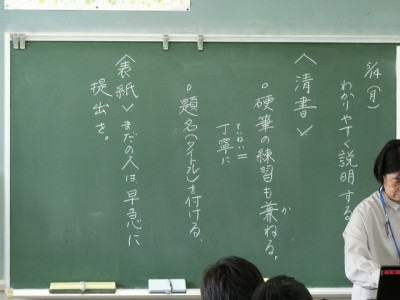 5/14(月)
わかりやすく説明する
〈清書〉
○硬筆の練習も兼ねる。
か
ていねい
丁寧に
○題名(タイトル)を付ける。
〈表紙〉まだの人は早急に
提出を。